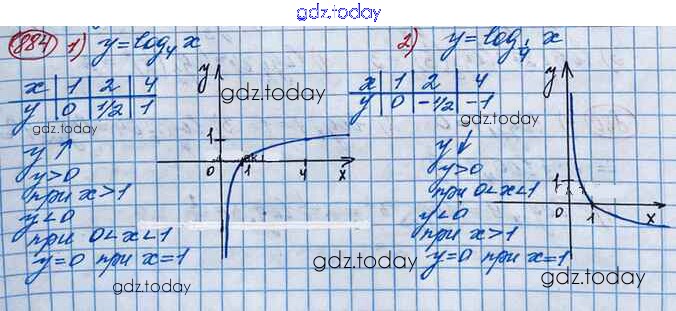 gdz.today
884 1) y = log₄ x
x | 1 | 2 | 4
y | 0 | 1/2 | 1
gdz.today
y ↑
y > 0
при x > 1
y < 0
при 0 < x < 1
y = 0 при x = 1
gdz.today
y
gdz.today
1
0 1 4 x
2) y = log_{1/4} x
x | 1 | 2 | 4
y | 0 | -1/2 | -1
gdz.today
y ↓
y > 0
при 0 < x < 1
y < 0
при x > 1
y = 0 при x = 1
gdz.today
y
1
0 1 x
gdz.today